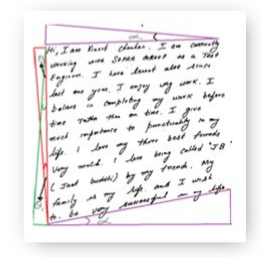 Hi, I am Vineet Chauhan. I am currently
working with SOPRA GROUP as a Test
Engineer. I have learnt alot since
last one year. I enjoy my work. I
believe in completing my work before
time rather than on time. I give
much importance to punctuality in my
life. I love my three best friends
very much. I love being called "JB"
( Jaat buddhi) by my friends. My
family is my life. and I wish
to be very successful in my life